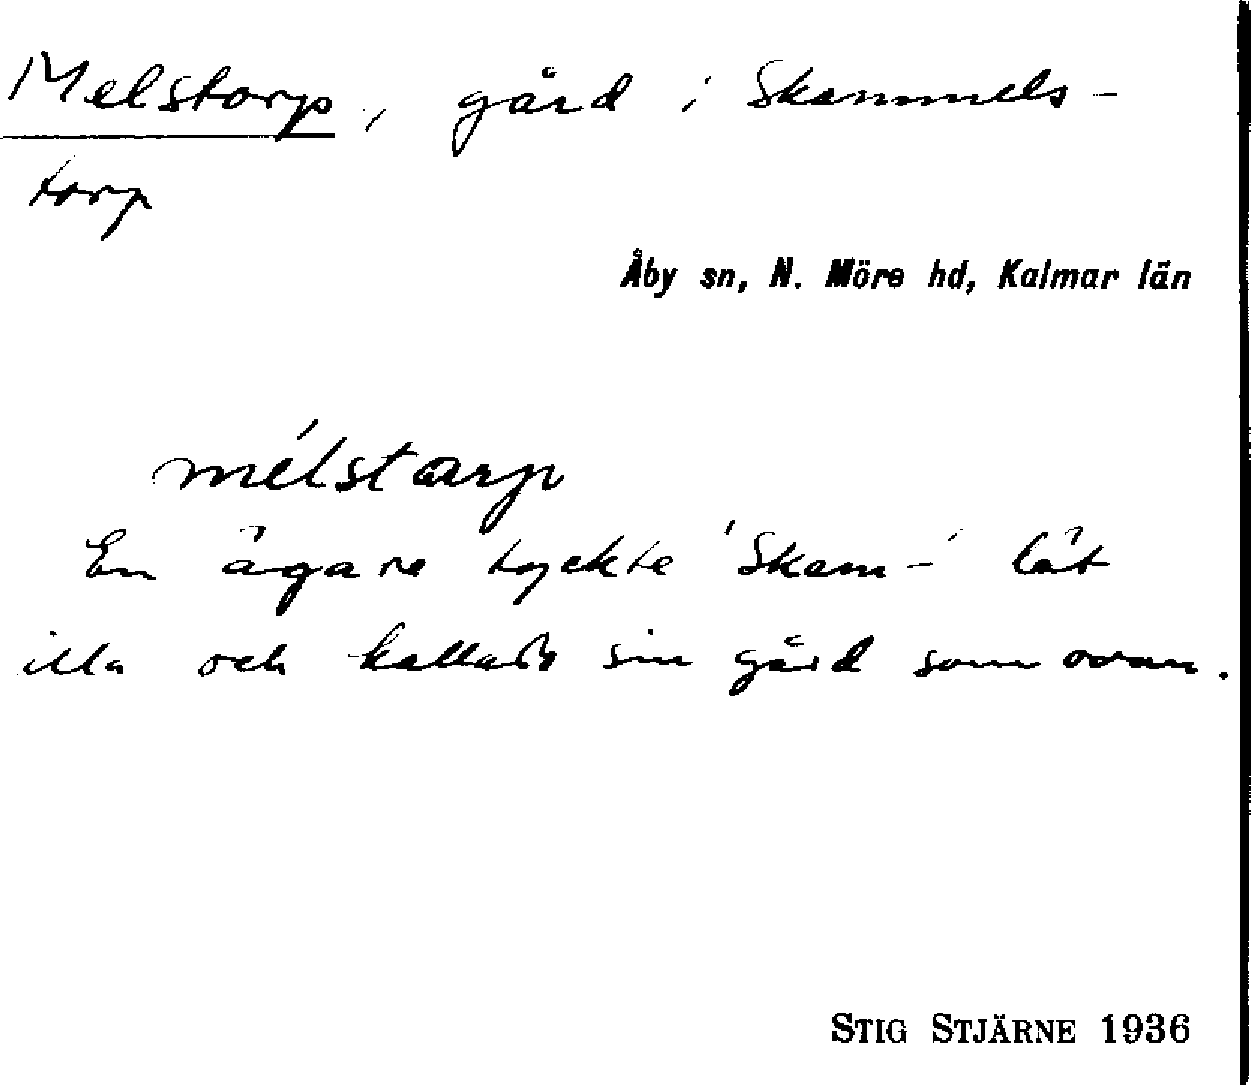 Melstorp, gård i Skammels-
torp
Åby sn, N. Möre hd, Kalmar län
mélstarp
En ägare tyckte 'Skam-' låt
illa och kallade sin gård som ovan.
STIG STJÄRNE 1936